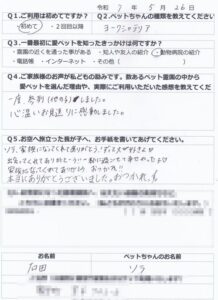 令和 7 年 5 月 26 日
Q1.ご利用は初めてですか？
・初めて ・2回目以降
Q2.ペットちゃんの種類を教えてください
ヨークシャテリア
Q3.一番最初に愛ペットを知ったきっかけは何ですか？
・霊園の近くを通った事がある ・知人や友人の紹介 ・動物病院の紹介
・電話帳 ・インターネット ・その他（ ）
Q4.ご家族様のお声が私どもの励みです。数あるペット霊園の中から
愛ペットを選んだ理由や、実際にご利用いただいた感想を教えてくだ
しました。
心温いお見送りに感動しました。
Q5.お空へ旅立った我が子へ、お手紙を書いてあげてください。
ソラ、家族になってくれてありがとう。
出会ってくれてありがとう
家族になってくれてありがとう
本当にありがとうございました。
お名前
ペットちゃんのお名前
石田
ソラ